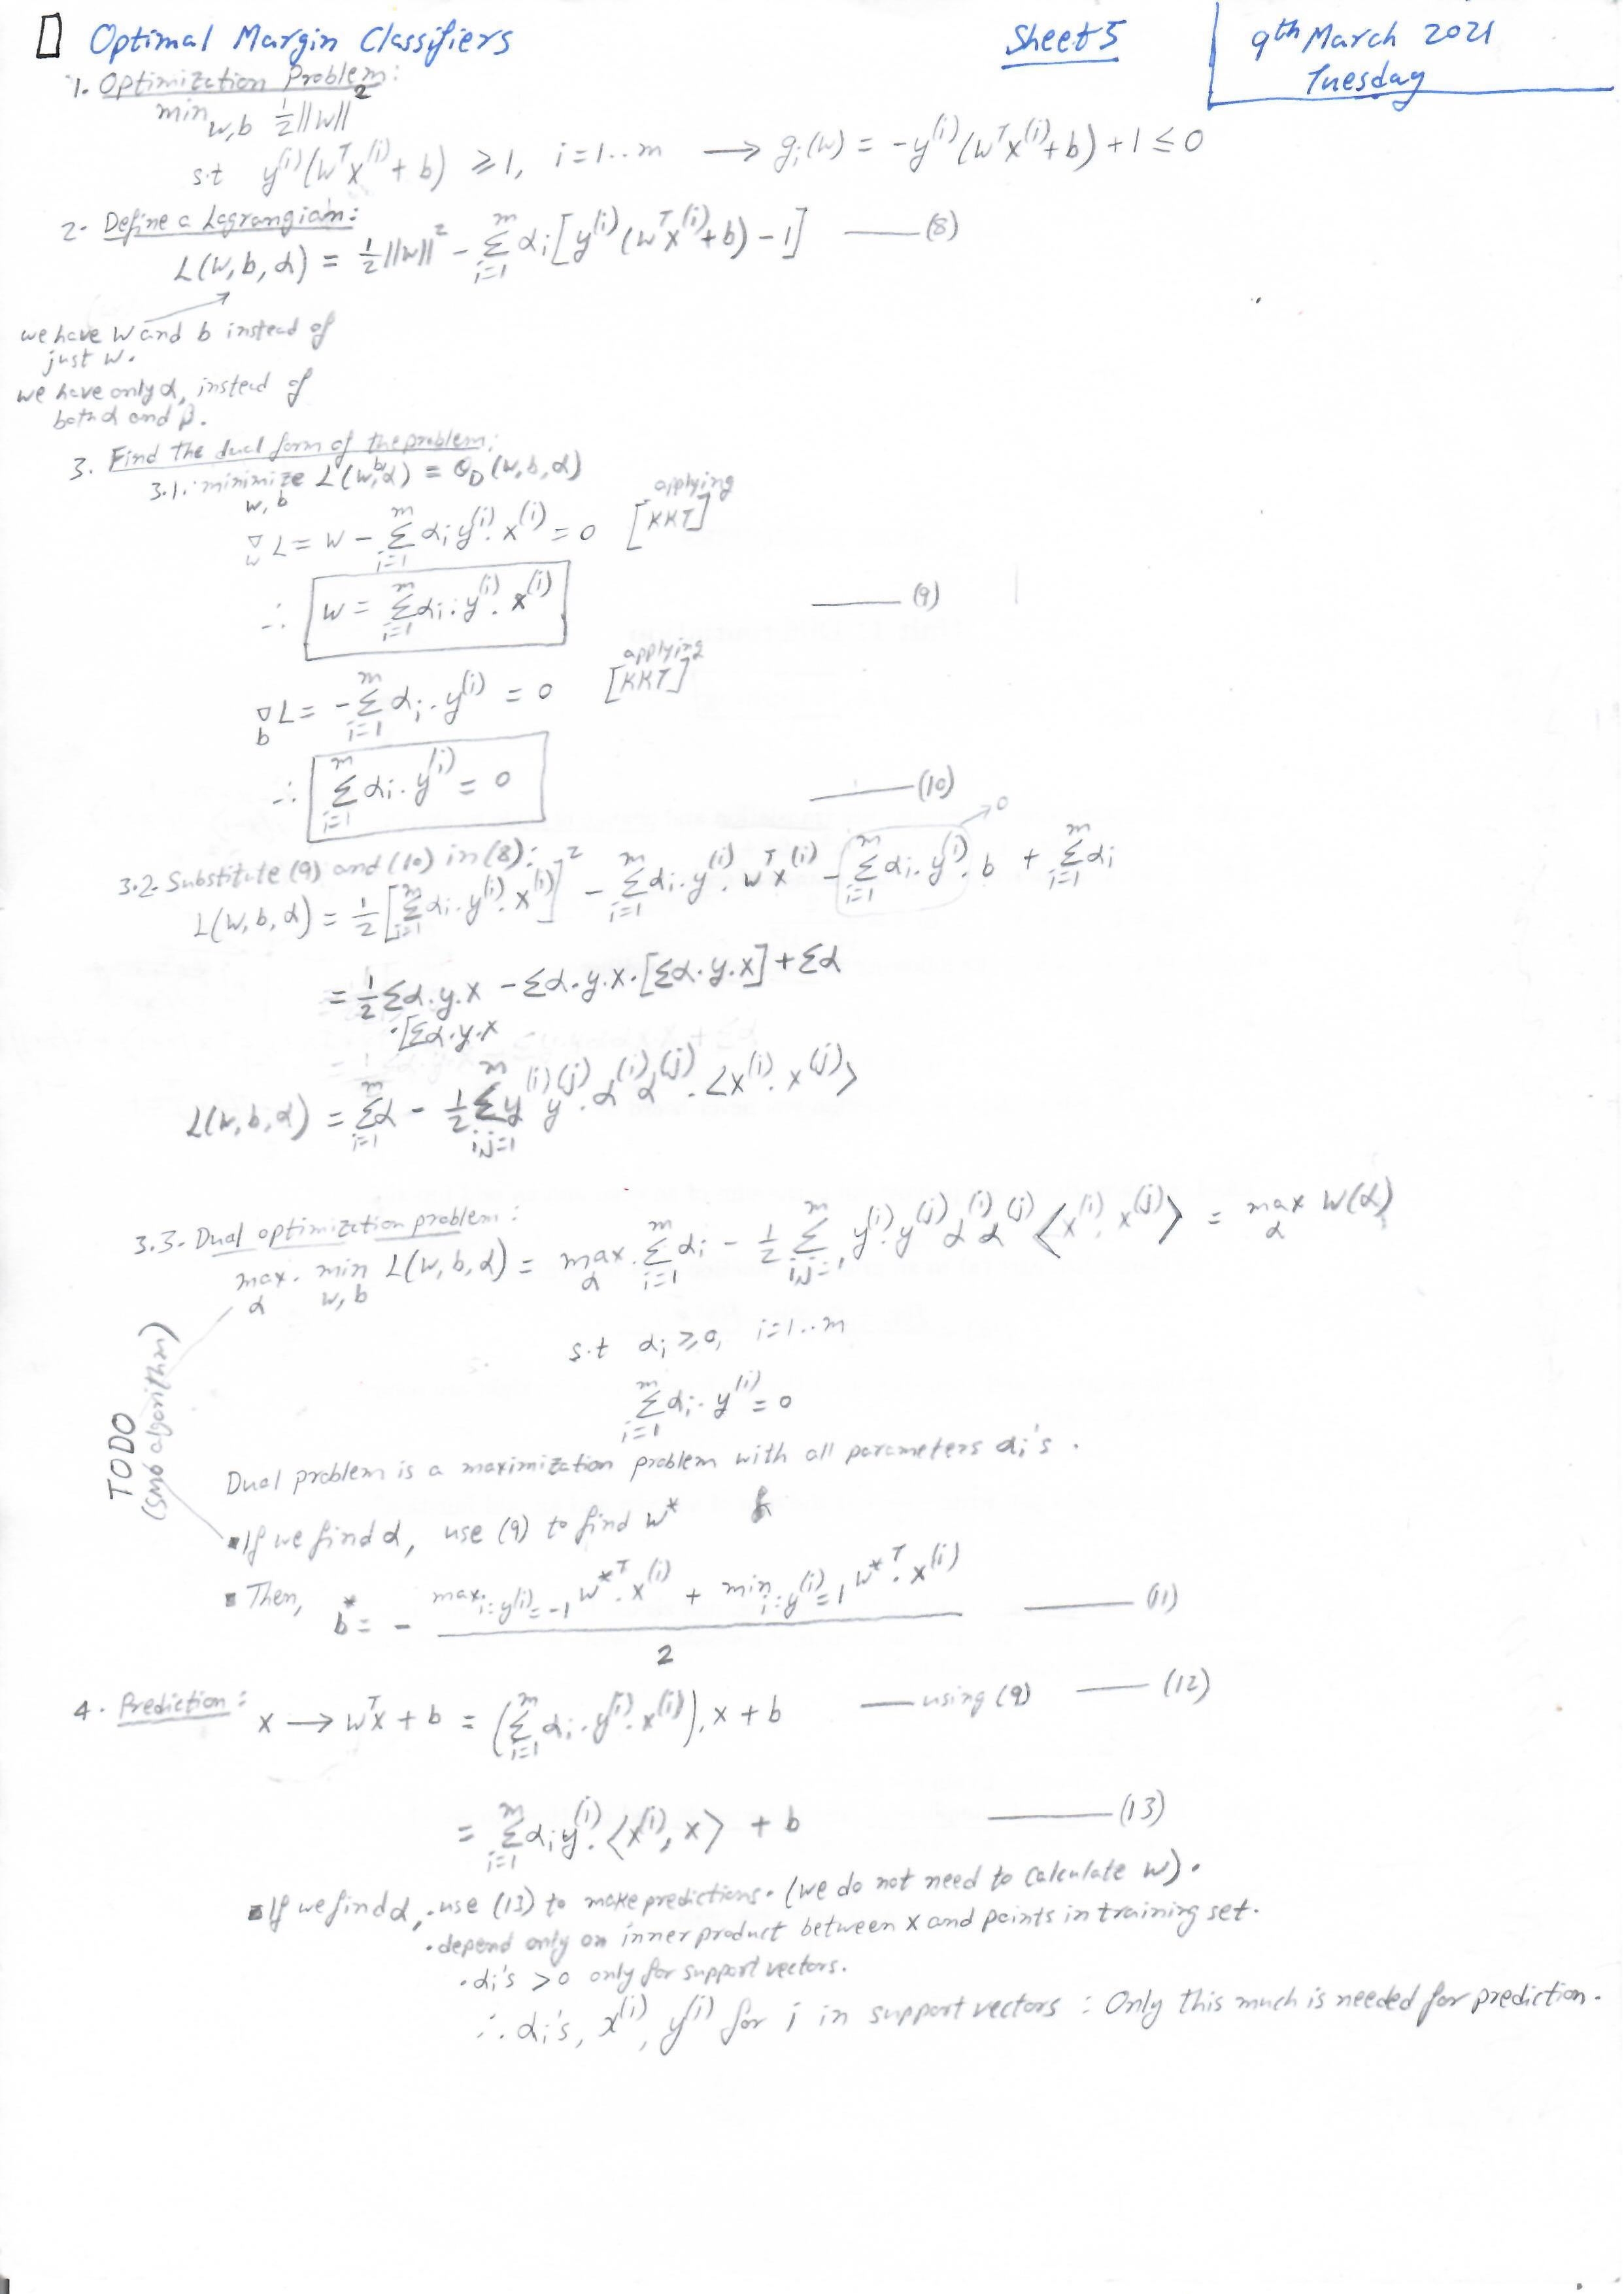 Optimal Margin Classifiers
Sheet 5
9th March 2021
Tuesday
1. Optimization Problem:
min w,b ½||w||²
s.t y⁽ⁱ⁾(wᵀx⁽ⁱ⁾ + b) ⩾ 1, i=1..m → gᵢ(w) = -y⁽ⁱ⁾(wᵀx⁽ⁱ⁾+b) + 1 ≤ 0
2- Define a Lagrangian:
L(w, b, α) = ½||w||² - Σᵢ₌₁ᵐ αᵢ[y⁽ⁱ⁾(wᵀx⁽ⁱ⁾+b) - 1] —— (8)
we have w and b instead of
just w.
we have only α, instead of
both α and β.
3. Find the dual form of the problem:
3.1. minimize w,b L(w,b,α) = θ_D(w,b,α)
∇_w L = w - Σᵢ₌₁ᵐ αᵢ y⁽ⁱ⁾. x⁽ⁱ⁾ = 0 [applying KKT]
∴ w = Σᵢ₌₁ᵐ αᵢ. y⁽ⁱ⁾. x⁽ⁱ⁾ —— (9)
∇_b L = - Σᵢ₌₁ᵐ αᵢ. y⁽ⁱ⁾ = 0 [applying KKT]
∴ Σᵢ₌₁ᵐ αᵢ. y⁽ⁱ⁾ = 0 —— (10)
3.2. Substitute (9) and (10) in (8):
L(w, b, α) = ½[Σᵢ₌₁ᵐ αᵢ. y⁽ⁱ⁾. x⁽ⁱ⁾]² - Σᵢ₌₁ᵐ αᵢ. y⁽ⁱ⁾. wᵀx⁽ⁱ⁾ - Σᵢ₌₁ᵐ αᵢ. y⁽ⁱ⁾. b → 0 + Σᵢ₌₁ᵐ αᵢ
= ½ Σα.y.x - Σα.y.x.[Σα.y.x] + Σα
.[Σα.y.x
L(w, b, α) = Σᵢ₌₁ᵐ α - ½ Σᵢ,ⱼ₌₁ᵐ y⁽ⁱ⁾ y⁽ʲ⁾. α⁽ⁱ⁾ α⁽ʲ⁾. <x⁽ⁱ⁾. x⁽ʲ⁾>
3.3- Dual optimization problem:
max α. min w,b L(w, b, α) = max α. Σᵢ₌₁ᵐ αᵢ - ½ Σᵢ,ⱼ₌₁ᵐ y⁽ⁱ⁾. y⁽ʲ⁾ α⁽ⁱ⁾ α⁽ʲ⁾ <x⁽ⁱ⁾, x⁽ʲ⁾> = max α W(α)
s.t αᵢ ⩾ 0, i=1..m
Σᵢ₌₁ᵐ αᵢ. y⁽ⁱ⁾ = 0
TODO
(SMO algorithm)
Dual problem is a maximization problem with all parameters αᵢ's.
▪ If we find α, use (9) to find w*
▪ Then, b* = - (max i:y⁽ⁱ⁾=-1 w*ᵀ. x⁽ⁱ⁾ + min i:y⁽ⁱ⁾=1 w*ᵀ. x⁽ⁱ⁾) / 2 —— (11)
4. Prediction:
x → wᵀx + b = (Σᵢ₌₁ᵐ αᵢ. y⁽ⁱ⁾. x⁽ⁱ⁾). x + b — using (9) —— (12)
= Σᵢ₌₁ᵐ αᵢ y⁽ⁱ⁾. <x⁽ⁱ⁾, x> + b —— (13)
▪ If we find α, .use (13) to make predictions. (we do not need to calculate w).
. depend only on inner product between x and points in training set.
. αᵢ's > 0 only for support vectors.
∴ αᵢ's, x⁽ⁱ⁾, y⁽ⁱ⁾ for i in support vectors : Only this much is needed for prediction.